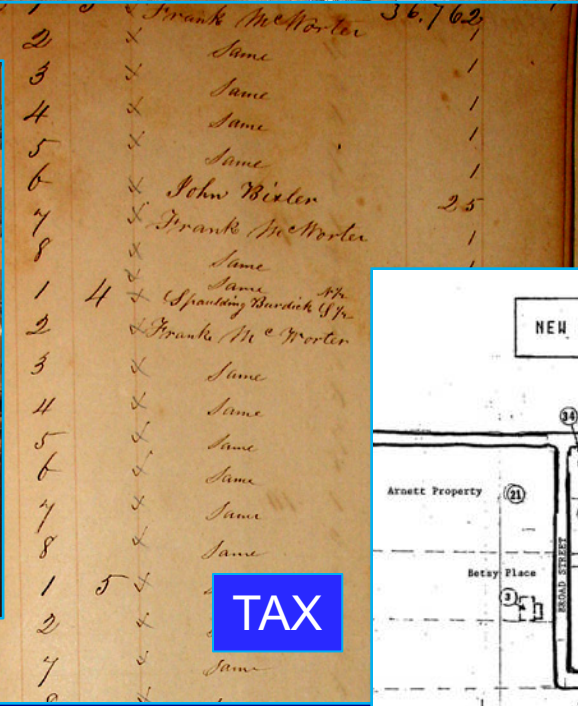 Frank McWorter 36.762
2 x Same 1
3 x Same 1
4 x Same 1
5 x Same 1
6 x John Bixler 25
7 x Frank McWorter 1
8 x Same
1 4 x Same N½
Spaulding Burdick S½
2 x Frank McWorter
3 x Same
4 x Same
5 x Same
6 x Same
7 x Same
8 x Same
1 5 x
2 x
7 x Same
TAX
NEW
34
Arnett Property 21
BROAD STREET
Betsy Place
3